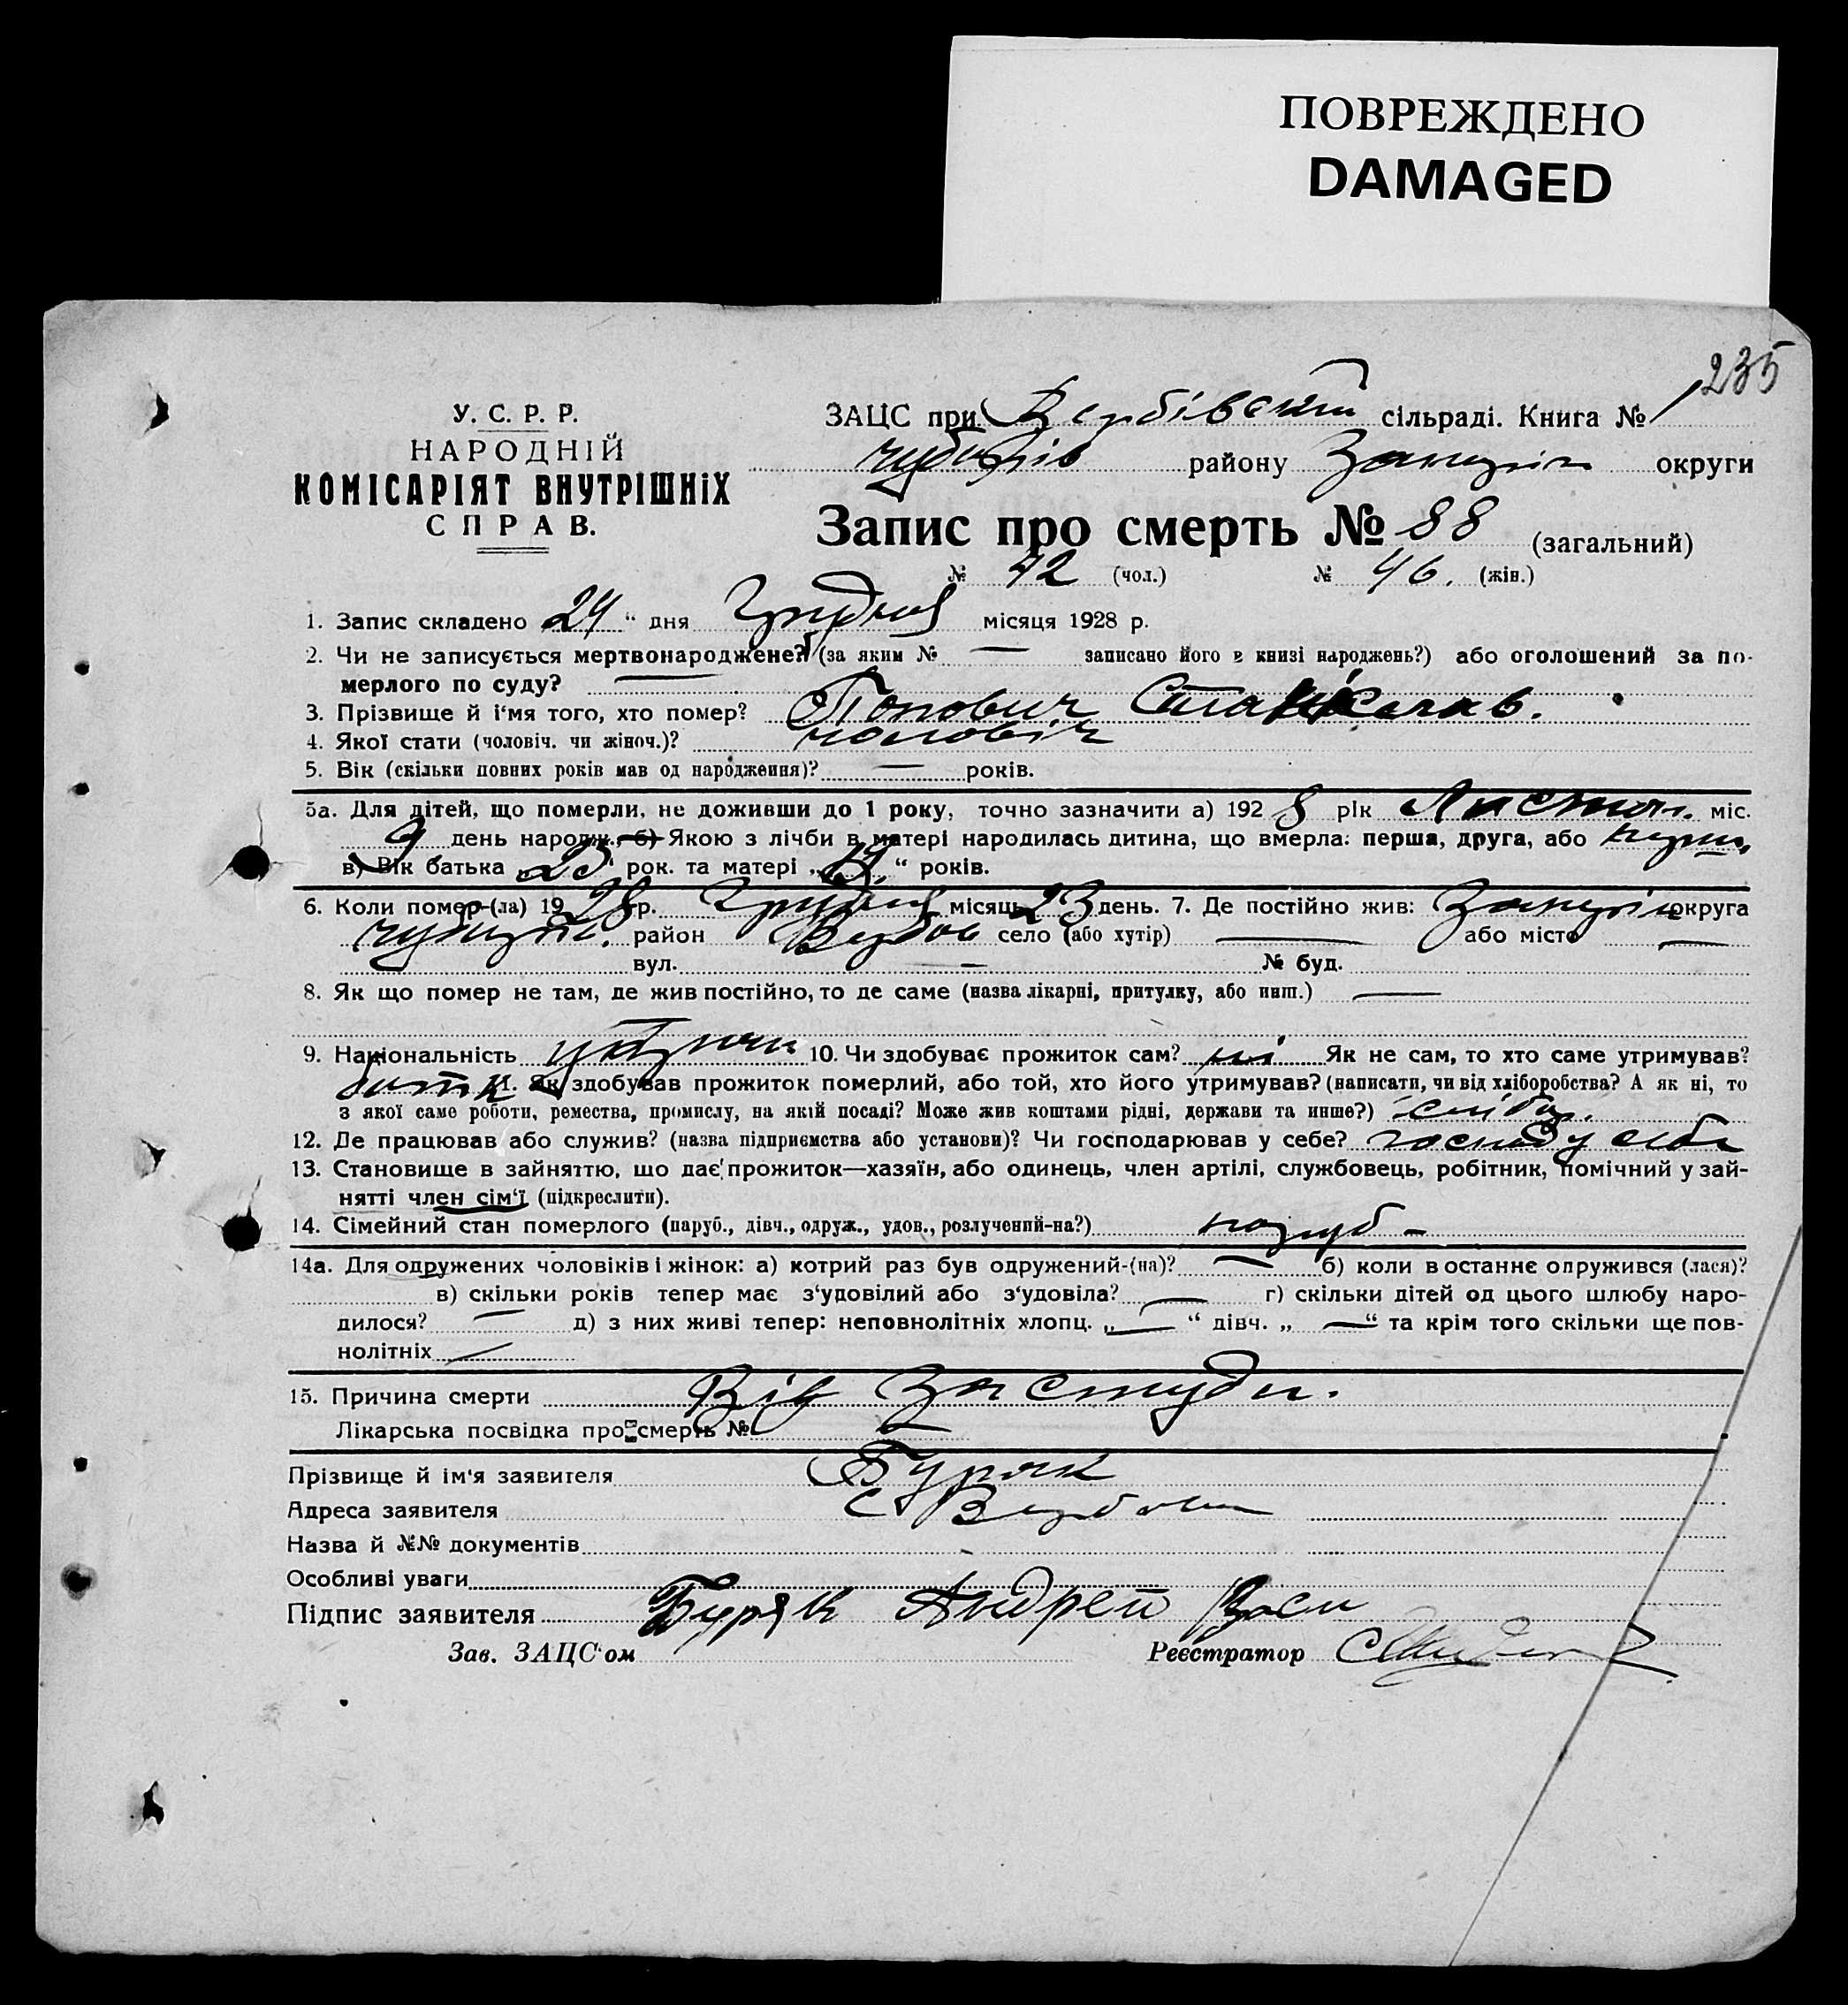 ПОВРЕЖДЕНО
DAMAGED
235
У. С. Р. Р.
НАРОДНІЙ
КОМІСАРІЯТ ВНУТРІШНіХ
СПРАВ.
ЗАЦС при Вербівській сільраді. Книга № 1
району округи
Запис про смерть № 88 (загальний)
№ 42 (чол.) № 46. (жін.)
1. Запис складено 24 “ дня Грудня місяця 1928 р.
2. Чи не записується мертвонароджене? (за яким № — записано його в книзі народжень?) або оголошений за по-
мерлого по суду? —
3. Прізвище й і‘мя того, хто помер? Попович Станіслав.
4. Якої стати (чоловіч. чи жіноч.)? чоловіч
5. Вік (скільки повних років мав од народження)? — років.
5а. Для дітей, що померли, не доживши до 1 року, точно зазначити а) 192 8 рік Листоп. міс.
9 день народж., б) Якою з лічби в матері народилась дитина, що вмерла: перша, друга, або перш.
в) Вік батька „ 25 “ рок. та матері „ “ років.
6. Коли помер-(ла) 19 28 р. Грудня місяць 23 день. 7. Де постійно жив: округа
район Вербов село (або хутір) — або місто —
вул. — № буд.
8. Як що помер не там, де жив постійно, то де саме (назва лікарні, притулку, або инш.) —
9. Національність 10. Чи здобуває прожиток сам? ні Як не сам, то хто саме утримував?
батьк 11. Як здобував прожиток померлий, або той, хто його утримував? (написати, чи від хліборобства? А як ні, то
з якої саме роботи, ремества, промислу, на якій посаді? Може жив коштами рідні, держави та инше?)
12. Де працював або служив? (назва підприємства або установи)? Чи господарював у себе? господ у себе
13. Становище в зайняттю, що дає прожиток—хазяїн, або одинець, член артілі, службовець, робітник, помічний у зай-
нятті член сім‘ї (підкреслити).
14. Сімейний стан померлого (паруб., дівч., одруж., удов., розлучений-на?) паруб —
14а. Для одружених чоловіків і жінок: а) котрий раз був одружений-(на)? — б) коли в останнє одружився (лася)?
в) скільки років тепер має з‘удовілий або з‘удовіла? — г) скільки дітей од цього шлюбу наро-
дилося? — д) з них живі тепер: неповнолітніх хлопц. „ — “ дівч. „ — “ та крім того скільки ще пов-
нолітніх —
15. Причина смерти Від застуди.
Лікарська посвідка про смерть № —
Прізвище й ім‘я заявителя Буряк
Адреса заявителя с Вербова
Назва й №№ документів -
Особливі уваги
Підпис заявителя Буряк Андрей Васи
Зав. ЗАЦС‘ом Реєстратор